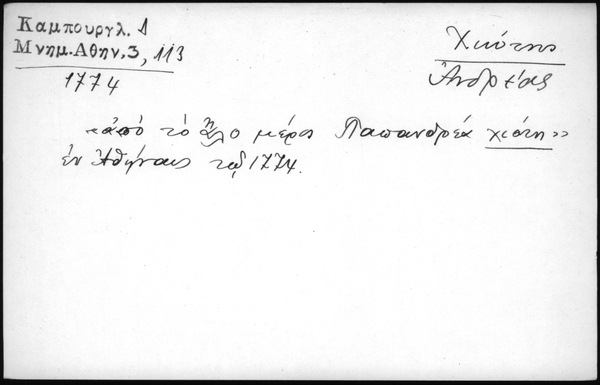 Καμπουργλ. Δ
Μνημ. Αθην. 3, 113
1774
Χιώτης
Ἀνδρέας
«ἀπό τὸ ἄλο μέρος Παπανδρέα χιότη»
ἐν Ἀθήναις τῷ 1774.